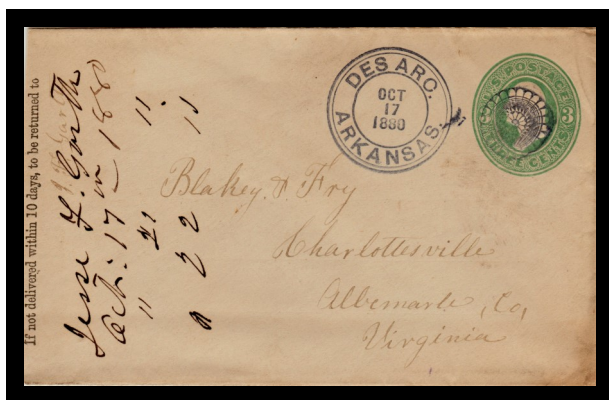 If not delivered within 10 days, to be returned to
Jesse F. Garth
Oct. 17th 1880
" 21 "
" 22 "
DES ARC.
OCT
17
1880
ARKANSAS.
U.S. POSTAGE
3 3
THREE CENTS
Blakey & Fry
Charlottesville
Albemarle, Co,
Virginia